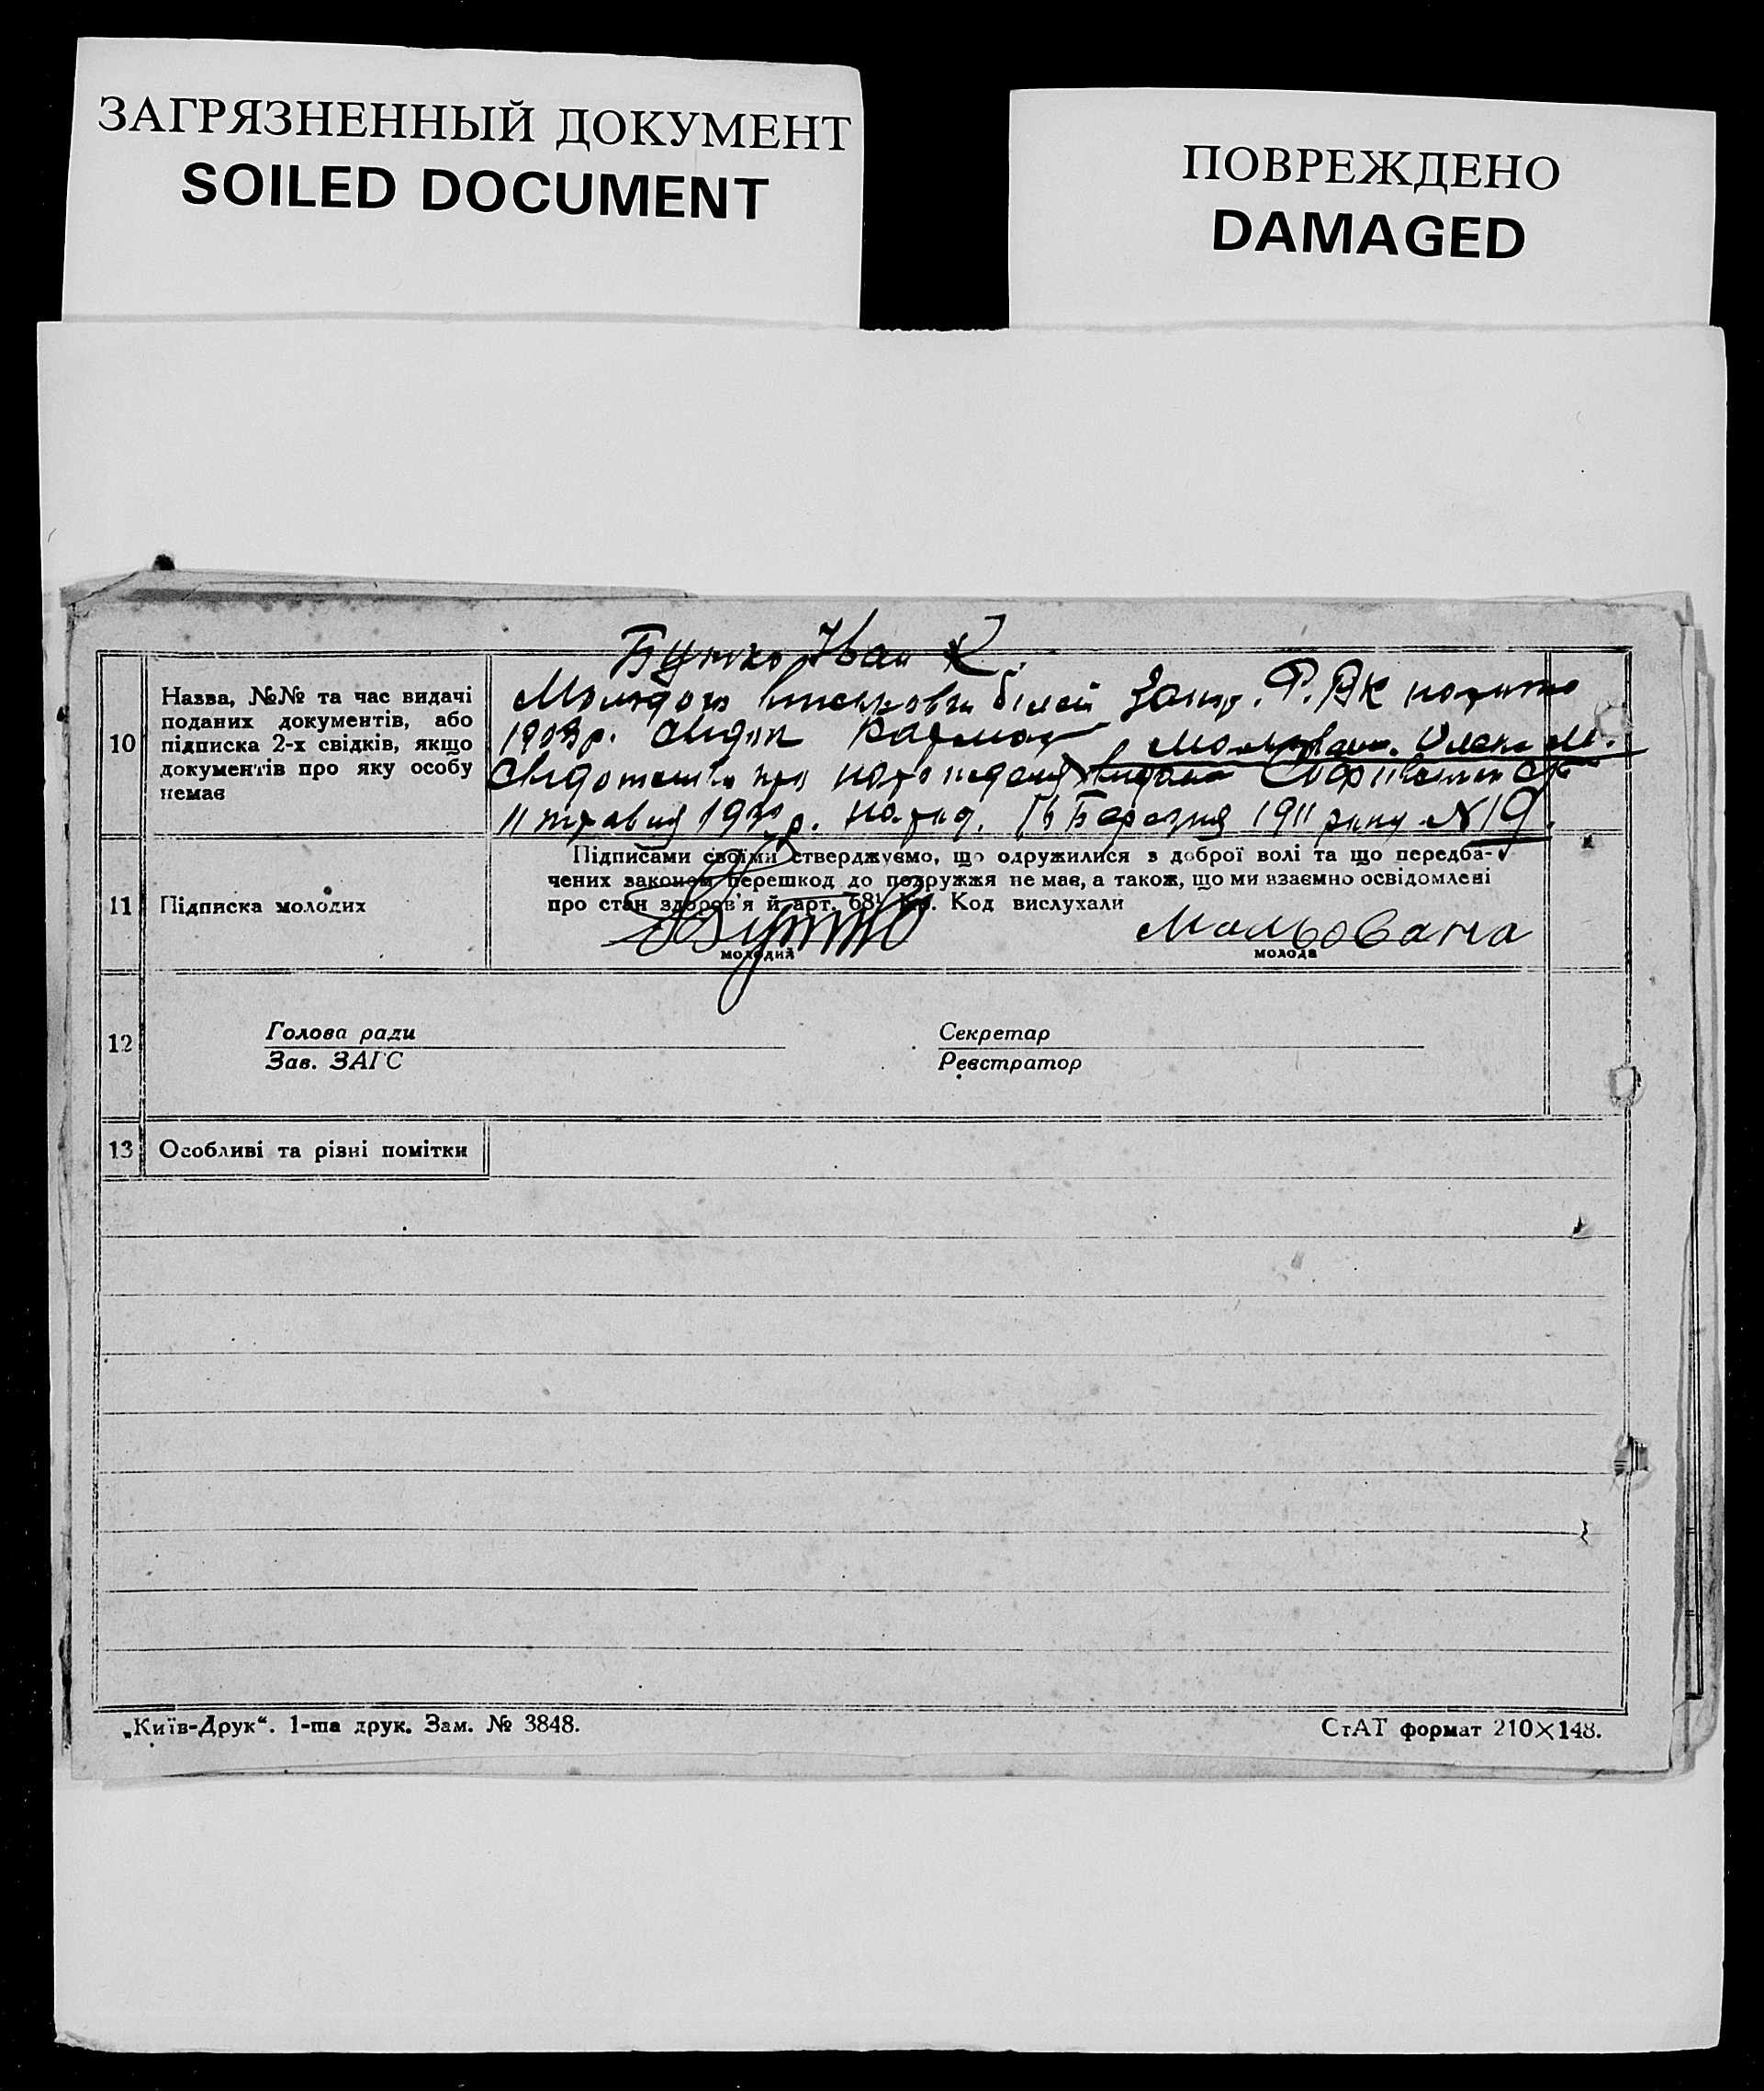 ЗАГРЯЗНЕННЫЙ ДОКУМЕНТ
SOILED DOCUMENT
ПОВРЕЖДЕНО
DAMAGED
Бутко Іван К.
10
Назва, №№ та час видачі
поданих документів, або
підписка 2-х свідків, якщо
документів про яку особу
немає
білет Запор. Р.ВК
1903 р. Олена М.
про народження видана
11 травня р. народ. Березня 1911 року N19.
11
Підписка молодих
Підписами своїми стверджуємо, що одружилися з доброї волі та що передба-
чених законом перешкод до подружжя не має, а також, що ми взаємно освідомлені
про стан здоров'я й арт. 68¹ Кр. Код вислухали
Бутко
Мальована
молодий
молода
12
Голова ради
Зав. ЗАГС
Секретар
Реєстратор
13
Особливі та різні помітки
„Київ-Друк“. 1-ша друк. Зам. № 3848.
СтАТ формат 210×148.